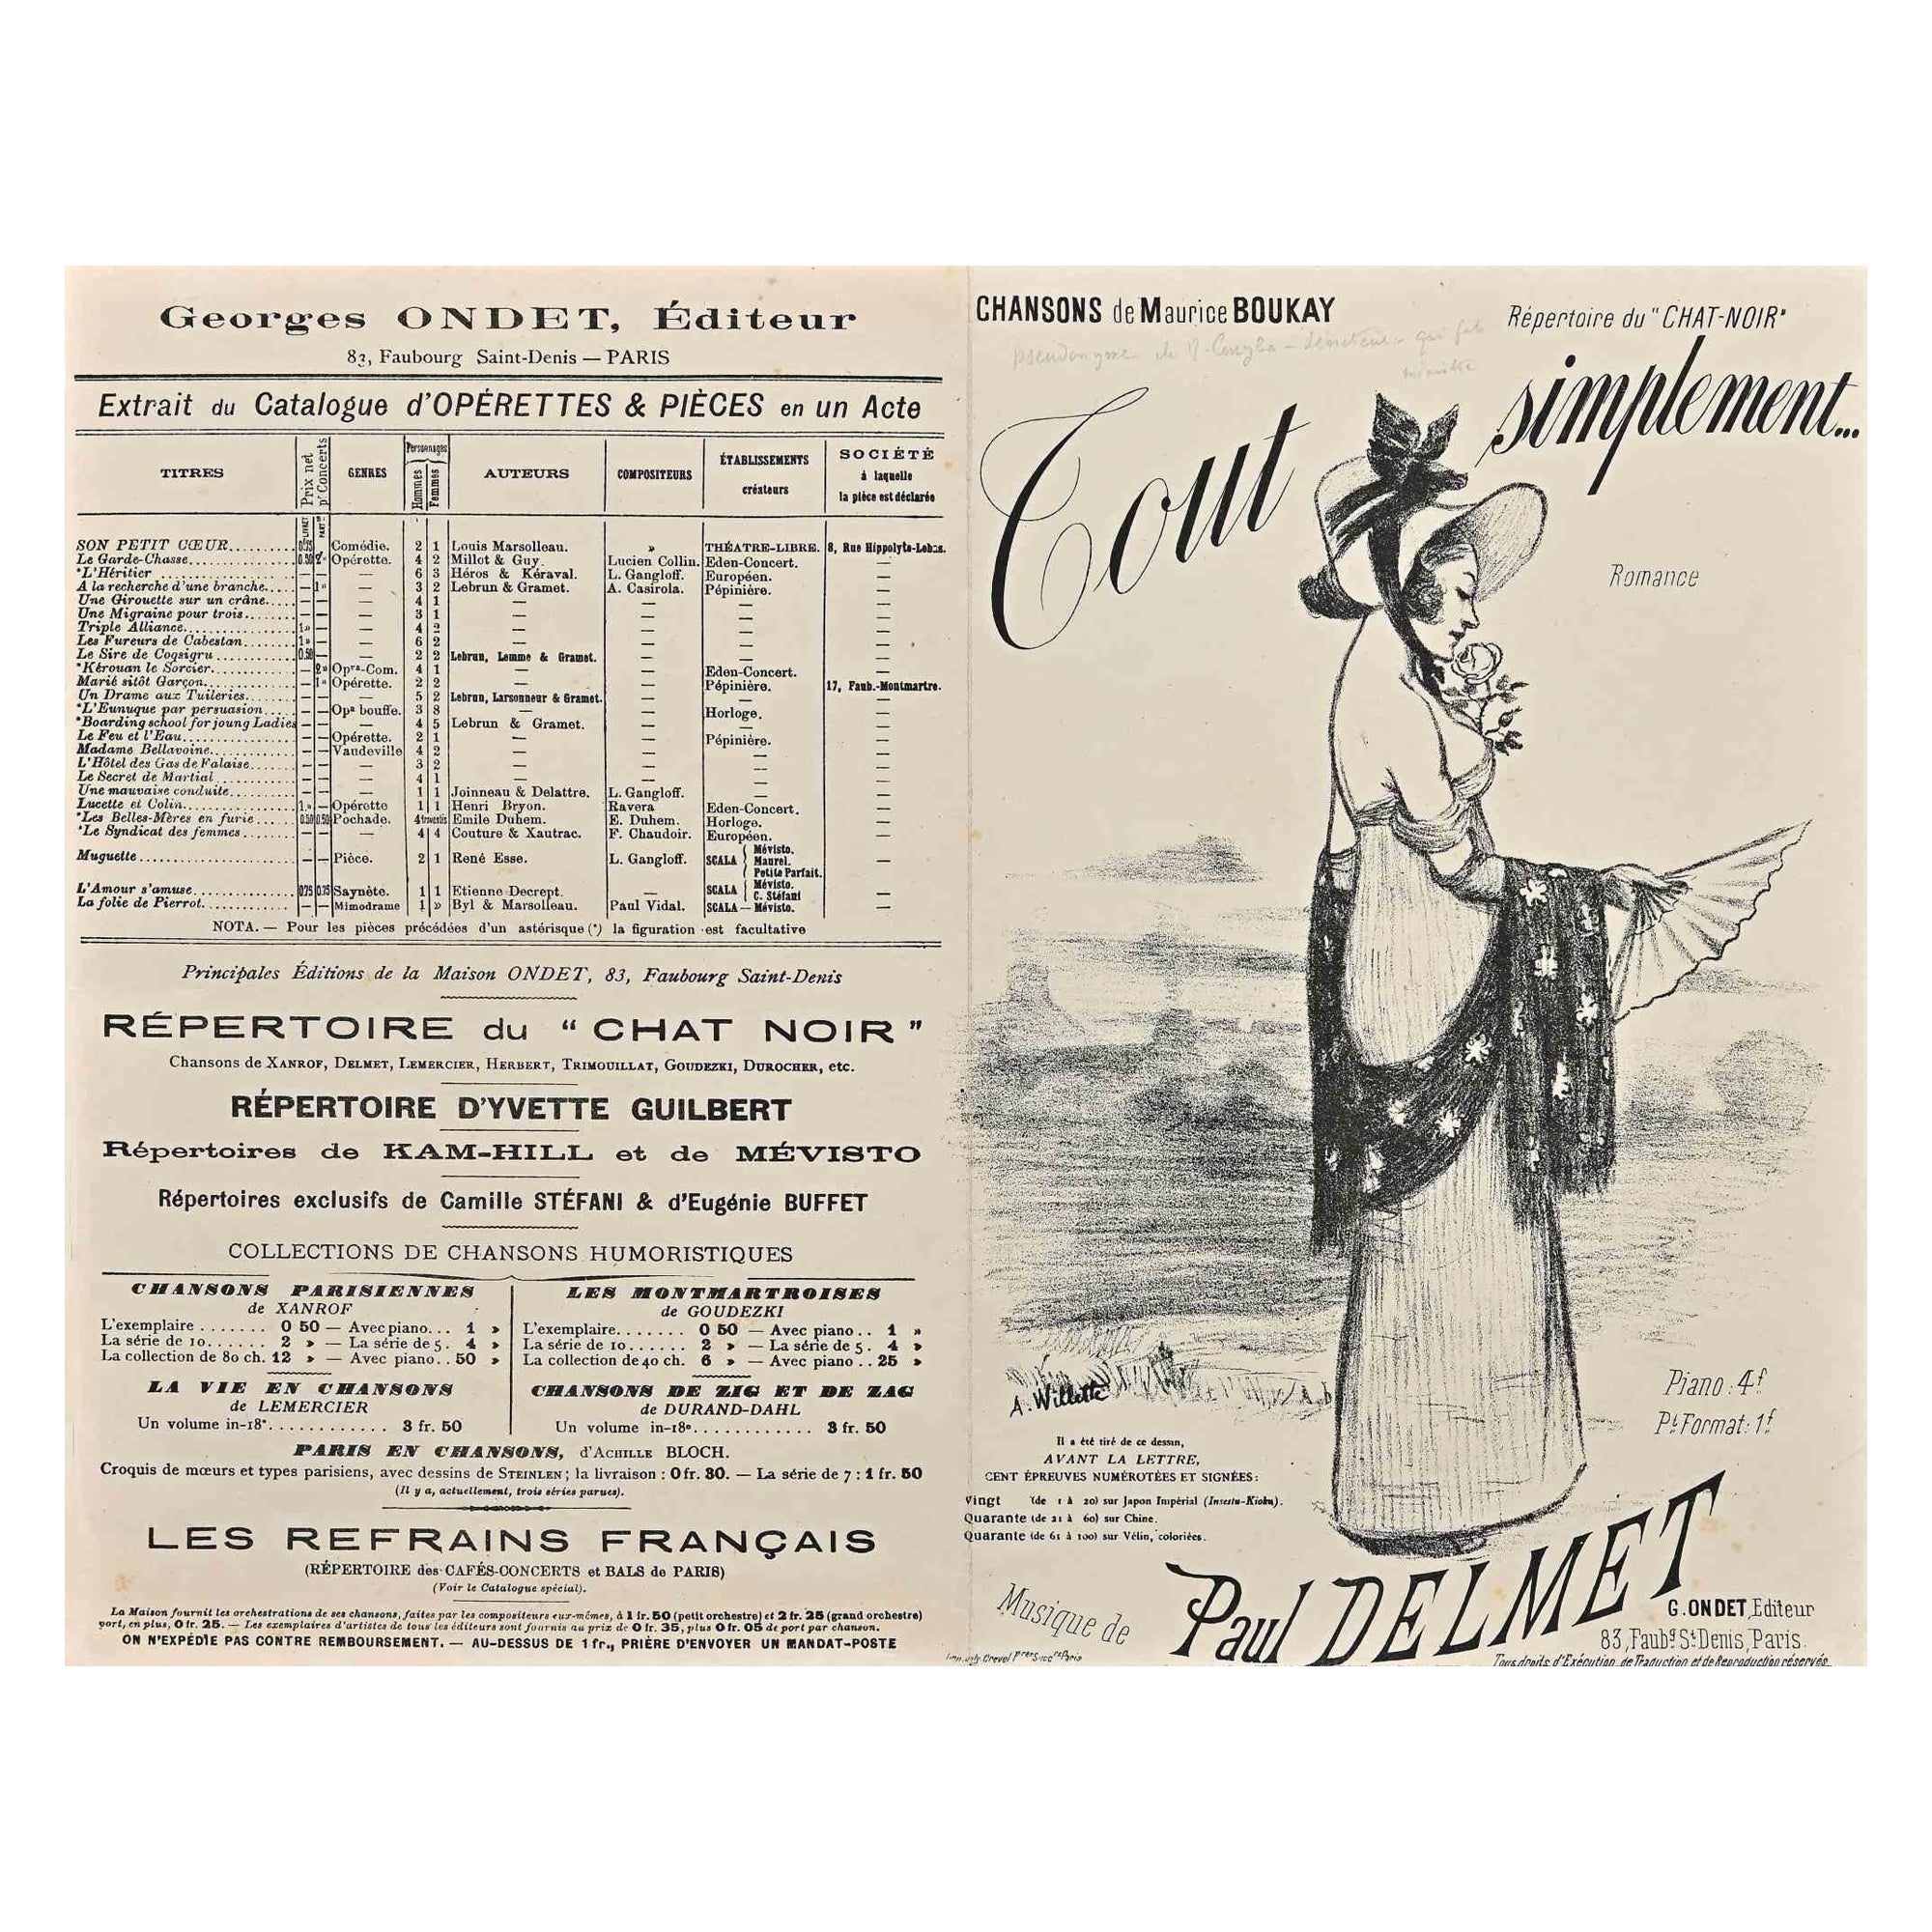 Georges ONDET, Éditeur
83, Faubourg Saint-Denis — PARIS
Extrait du Catalogue d'OPÉRETTES & PIÈCES en un Acte
TITRES Prix net pr Concerts GENRES Personnages Hommes Femmes AUTEURS COMPOSITEURS ÉTABLISSEMENTS créateurs SOCIÉTÉ à laquelle la pièce est déclarée
SON PETIT CŒUR.......... 0.75 Comédie. 2 1 Louis Marsolleau. » THÉATRE-LIBRE. 8, Rue Hippolyte-Lebas.
Le Garde-Chasse.......... 0.50 2 » Opérette. 4 2 Millot & Guy. Lucien Collin. Eden-Concert. —
*L'Héritier .......... — — — 6 3 Héros & Kéraval. L. Gangloff. Européen. —
A la recherche d'une branche..... — 1 » — 3 2 Lebrun & Gramet. A. Casirola. Pépinière. —
Une Girouette sur un crâne..... — — — 4 1 — — — —
Une Migraine pour trois....... — — — 3 1 — — — —
Triple Alliance.......... 1 » — — 4 2 — — — —
Les Fureurs de Cabestan ....... 1 » — — 6 2 — — — —
Le Sire de Cogsigru .......... 0.50 — — 2 2 Lebrun, Lemme & Gramet. — — —
*Kérouan le Sorcier.......... — 2 » Opra-Com. 4 1 — — Eden-Concert. —
Marié sitôt Garçon.......... — 1 » Opérette. 2 2 — — Pépinière. 17, Faub.-Montmartre.
Un Drame aux Tuileries....... — — — 5 2 Lebrun, Larsonneur & Gramet. — — —
*L'Eunuque par persuasion..... — — Opa bouffe. 3 8 — — Horloge. —
*Boarding school for joung Ladies — — — 4 5 Lebrun & Gramet. — — —
Le Feu et l'Eau.......... — — Opérette. 2 1 — — Pépinière. —
Madame Bellavoine.......... — — Vaudeville 4 2 — — — —
L'Hôtel des Gas de Falaise....... — — — 3 2 — — — —
Le Secret de Martial .......... — — — 4 1 — — — —
Une mauvaise conduite.......... — — — 1 1 Joinneau & Delattre. L. Gangloff. — —
Lucette et Colin.......... 1 » — Opérette 1 1 Henri Bryon. Ravera Eden-Concert. —
*Les Belles-Mères en furie ...... 0.50 0.50 Pochade. 4 travestis Emile Duhem. E. Duhem. Horloge. —
*Le Syndicat des femmes ....... — — — 4 4 Couture & Xautrac. F. Chaudoir. Européen. —
Muguette.......... — — Pièce. 2 1 René Esse. L. Gangloff. SCALA { Mévisto. Maurel. Petite Parfait. —
L'Amour s'amuse.......... 0.75 0.75 Saynète. 1 1 Etienne Decrept. — SCALA { Mévisto. C. Stéfani —
La folie de Pierrot.......... — — Mimodrame 1 » Byl & Marsolleau. Paul Vidal. SCALA — Mévisto. —
NOTA. — Pour les pièces précédées d'un astérisque (*) la figuration est facultative
Principales Éditions de la Maison ONDET, 83, Faubourg Saint-Denis
RÉPERTOIRE du “ CHAT NOIR ”
Chansons de XANROF, DELMET, LEMERCIER, HERBERT, TRIMOUILLAT, GOUDEZKI, DUROCHER, etc.
RÉPERTOIRE D'YVETTE GUILBERT
Répertoires de KAM-HILL et de MÉVISTO
Répertoires exclusifs de Camille STÉFANI & d'Eugénie BUFFET
COLLECTIONS DE CHANSONS HUMORISTIQUES
CHANSONS PARISIENNES
de XANROF
L'exemplaire ....... 0 50 — Avec piano... 1 »
La série de 10...... 2 » — La série de 5. 4 »
La collection de 80 ch. 12 » — Avec piano.. 50 »
LA VIE EN CHANSONS
de LEMERCIER
Un volume in-18°............ 3 fr. 50
LES MONTMARTROISES
de GOUDEZKI
L'exemplaire....... 0 50 — Avec piano.. 1 »
La série de 10...... 2 » — La série de 5. 4 »
La collection de 40 ch. 6 » — Avec piano .. 25 »
CHANSONS DE ZIG ET DE ZAG
de DURAND-DAHL
Un volume in-18°............ 3 fr. 50
PARIS EN CHANSONS, d'ACHILLE BLOCH.
Croquis de mœurs et types parisiens, avec dessins de STEINLEN ; la livraison : 0 fr. 30. — La série de 7 : 1 fr. 50
(Il y a, actuellement, trois séries parues).
LES REFRAINS FRANÇAIS
(RÉPERTOIRE des CAFÉS-CONCERTS et BALS de PARIS)
(Voir le Catalogue spécial).
La Maison fournit les orchestrations de ses chansons, faites par les compositeurs eux-mêmes, à 1 fr. 50 (petit orchestre) et 2 fr. 25 (grand orchestre)
port, en plus, 0 fr. 25. — Les exemplaires d'artistes de tous les éditeurs sont fournis au prix de 0 fr. 35, plus 0 fr. 05 de port par chanson.
ON N'EXPÉDIE PAS CONTRE REMBOURSEMENT. — AU-DESSUS DE 1 fr., PRIÈRE D'ENVOYER UN MANDAT-POSTE
CHANSONS de Maurice BOUKAY
Répertoire du "CHAT-NOIR"
pseudonyme de M. Couyba – sénateur – qui fut
ministre
Tout simplement...
Romance
A. Willette
Piano : 4f
Pt Format : 1f
Il a été tiré de ce dessin,
AVANT LA LETTRE,
CENT ÉPREUVES NUMÉROTÉES ET SIGNÉES :
Vingt (de 1 à 20) sur Japon Impérial (Insestu-Kioku).
Quarante (de 21 à 60) sur Chine.
Quarante (de 61 à 100) sur Vélin, coloriées.
Musique de Paul DELMET
G. ONDET, Editeur
83, Faubg St Denis, Paris.
Imp. Crevel Frères Succrs Paris
Tous droits d'Exécution, de Traduction et de Reproduction réservés